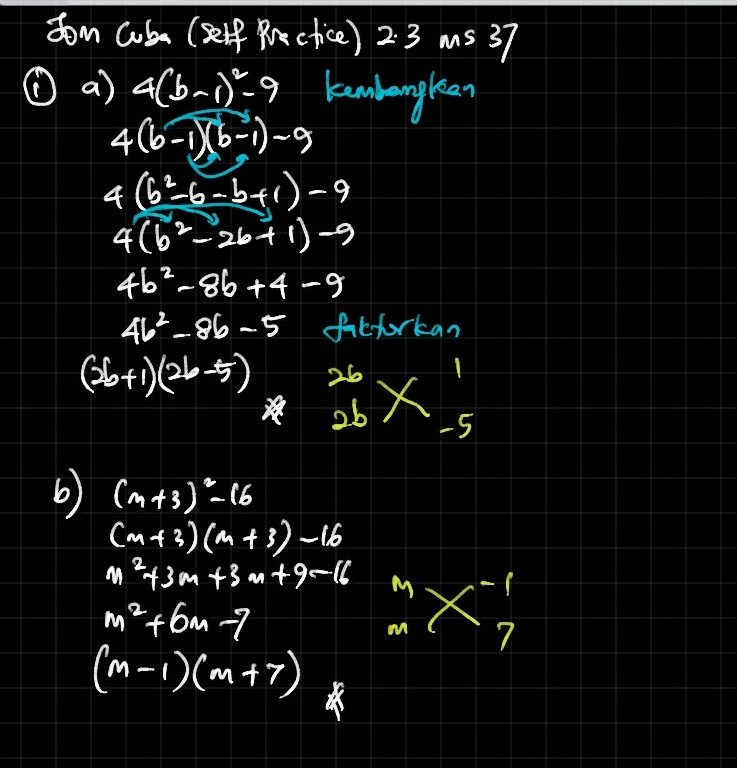 Jom Cuba (Self Practice) 2.3 ms 37
① a) 4(b-1)²-9 kembangkan
4(b-1)(b-1)-9
4(b²-b-b+1)-9
4(b²-2b+1)-9
4b²-8b+4-9
4b²-8b-5 faktorkan
(2b+1)(2b-5) 2b 1
2b -5
b) (m+3)²-16
(m+3)(m+3)-16
m²+3m+3m+9-16
m -1
m²+6m-7
m 7
(m-1)(m+7)